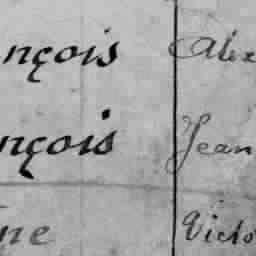 nçois Alex
nçois Jean
ne Victo